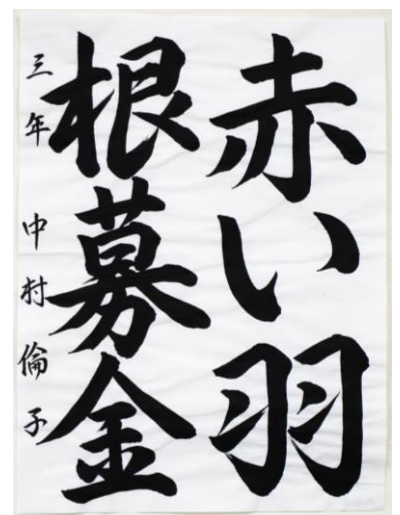 赤い羽
根募金
三年 中村倫子